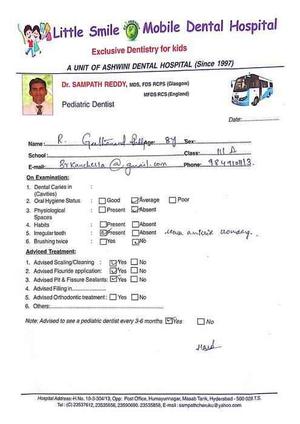 Little Smile Mobile Dental Hospital
Exclusive Dentistry for kids
A UNIT OF ASHWINI DENTAL HOSPITAL (Since 1997)
Dr. SAMPATH REDDY, MDS, FDS RCPS (Glasgow)
MFDS RCS (England)
Pediatric Dentist
Date:
Name: R. Age: 8y Sex:
School: Class: III A
E-mail: @gmail.com Phone:
On Examination:
1. Dental Caries in :
(Cavities)
2. Oral Hygiene Status : Good Average Poor
3. Physiological : Present Absent
Spaces
4. Habits : Present Absent
5. Irregular teeth : Present Absent
6. Brushing twice : Yes No
Adviced Treatment:
1. Advised Scaling/Cleaning : Yes No
2. Advised Flauride application: Yes No
3. Advised Pit & Fissure Sealants: Yes No
4. Advised Filling in
5. Advised Orthodontic treatment: Yes No
6. Others:
Note: Advised to see a pediatric dentist every 3-6 months Yes No
Hospital Address: H.No. 10-3-304/13, Opp: Post Office, Humayunnagar, Masab Tank, Hyderabad - 500 028 T.S.